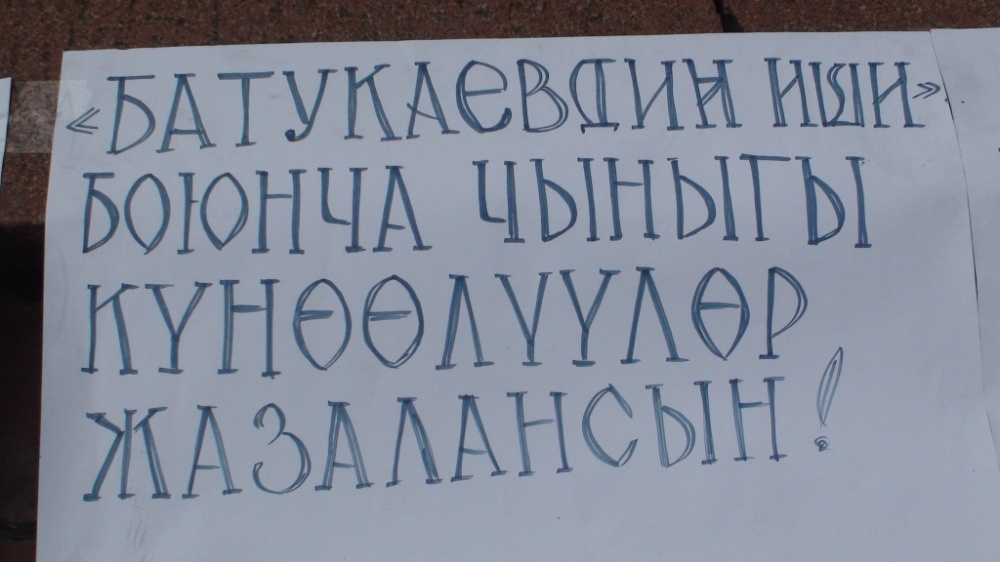 «БАТУКАЕВДИН ИШИ»
БОЮНЧА ЧЫНЫГЫ
КҮНӨӨЛҮҮЛӨР
ЖАЗАЛАНСЫН!